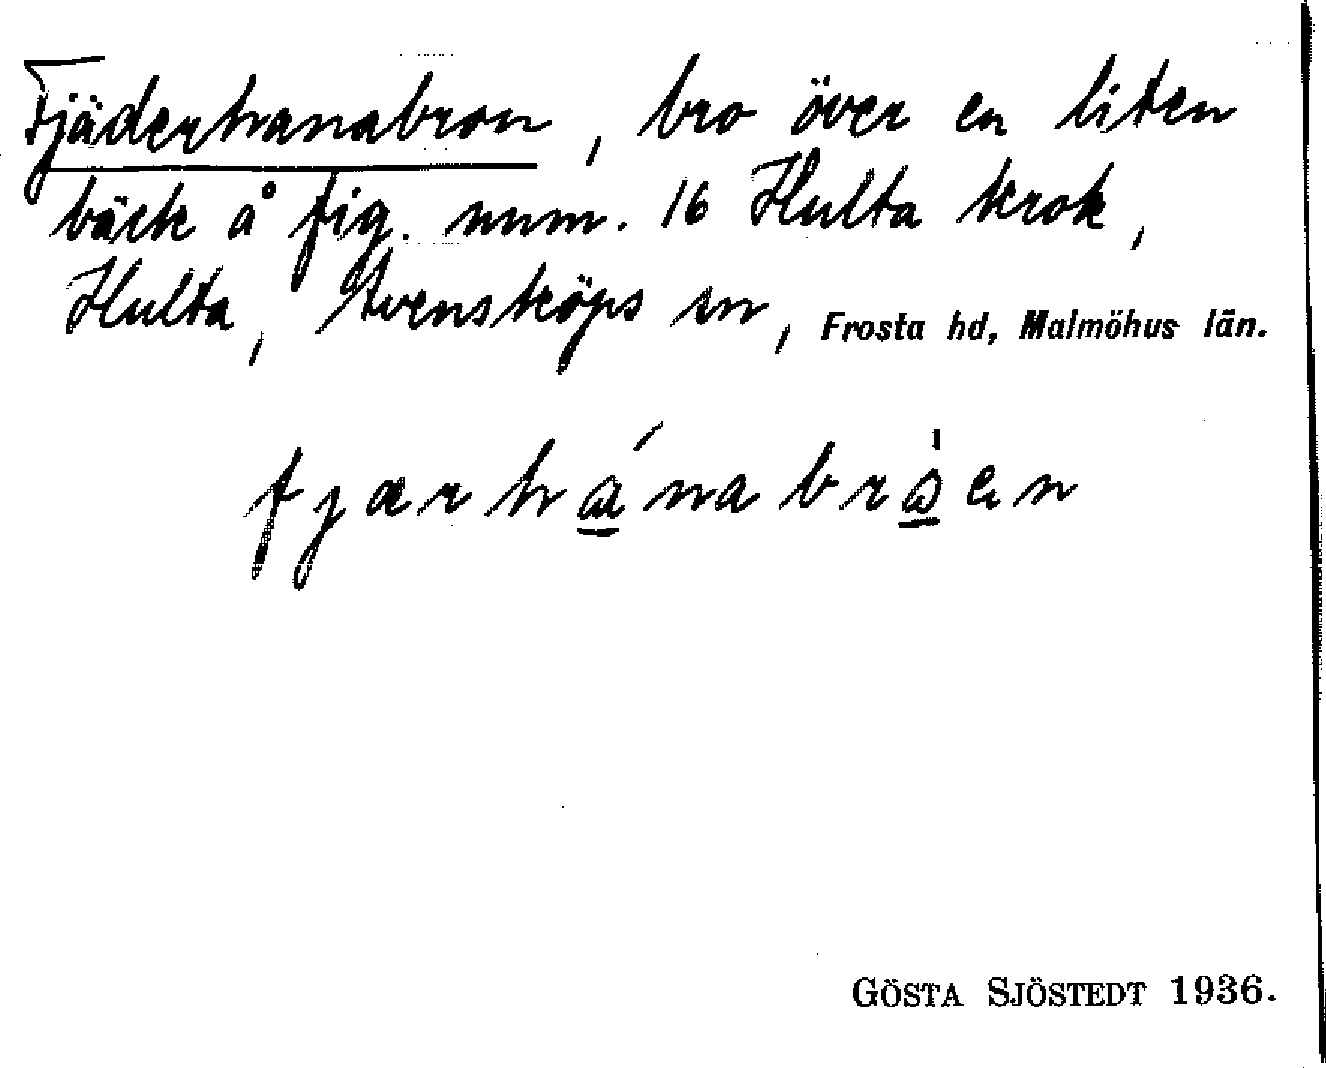 Fjäderhanabron, bro över en liten
bäck å fig. num. 16 Hulta krok,
Hulta, Svensköps sn, Frosta hd, Malmöhus län.
fjærhánabråen
GÖSTA SJÖSTEDT 1936.